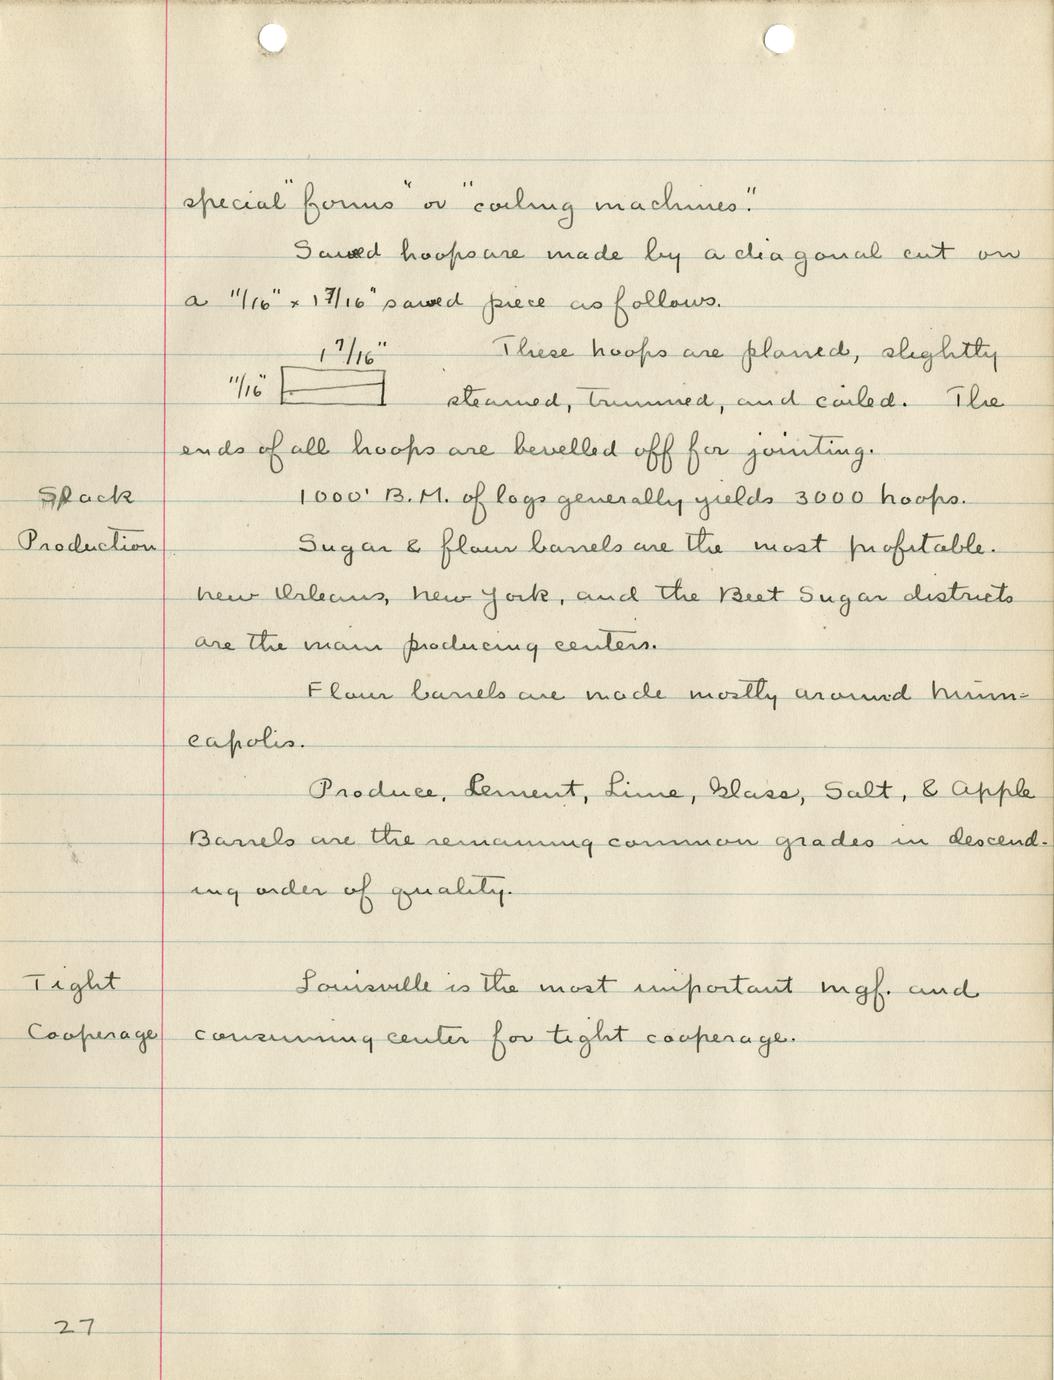 special "forms" or "coiling machines."
Sawed hoops are made by a diagonal cut on
a 11/16" x 1 7/16" sawed piece as follows.
1 7/16" These hoops are planed, slightly
11/16" steamed, trimmed, and coiled. The
ends of all hoops are bevelled off for jointing.
Slack 1000' B.M. of logs generally yields 3000 hoops.
Production Sugar & flour barrels are the most profitable.
New Orleans, New York, and the Beet Sugar districts
are the main producing centers.
Flour barrels are made mostly around Minn-
eapolis.
Produce, Cement, Lime, Glass, Salt, & Apple
Barrels are the remaining common grades in descend-
ing order of quality.
Tight Louisville is the most important mgf. and
Cooperage consuming center for tight cooperage.
27